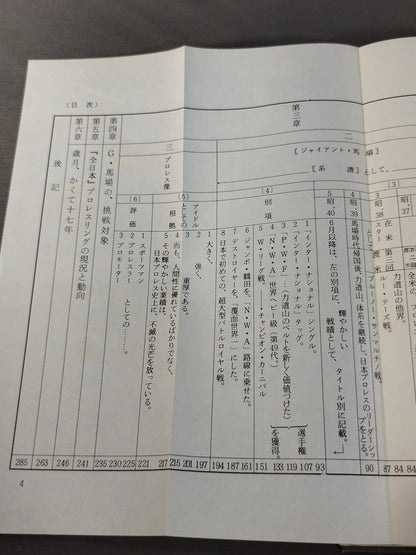 （目 次）
第三章
二
〔ジャイアント・馬場〕
〔系 譜〕として、
〔3〕
昭・37
在米
第二回
スター
渡米
全米の
力道山の他界。
ルー・テーズ戦。
ブルーノ・サンマルチノ戦。
4 昭・39 馬場時代帰国後、力道山、体系を継続し、日本プロレスのリーダーシップをとる。
として、
5 昭・40 6月以降は、左の別項に、輝やかしい戦績として、タイトル別に記載。
〔4〕
別項
1 「インター・ナショナル」シングル。
2 「インター・ナショナル」タッグ。
3 「P・W・F…（力道山のベルトを新しく価値づけた）
4 「N・W・A」世界ヘビー級（第49代。）
選手権を獲得。
5 W・リーグ戦。…チャンピオン・カーニバル
6 ジャンボ・鶴田を、「N・W・A」路線に乗せた。
7 デストロイヤーを、「覆面世界一」にした。
8 日本で初めての、超大型バトルロイヤル戦。
三 プロレス像
アイドルとしての
根拠
1 大きく、
2 強く、
3 重厚である。
4 而も、人間性に優れているばかりでなく、
5 その輝やかしい業績は、日本プロレス史上に、不滅の光芒を放っている。
〔6〕
評価
1 スポーツマン
2 プロレスラー
3 プロモーター
としての……。
第四章 G・馬場の、挑戦対象
第五章 『全日本』プロレスリングの現況と動向
第六章 歳月、かくて十七年
後記
84 84 87 90 93 107 119 133 151 161 187 194 197 201 215 217 221 225 230 235 241 246 263 285
4